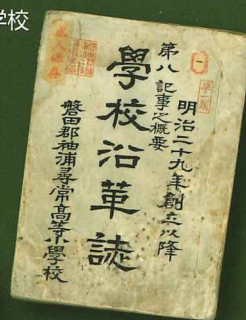 学校
明治二十九年創立以降
第八 記事之概要
學校沿革誌
磐田郡袖浦尋常高等小學校
永久保存